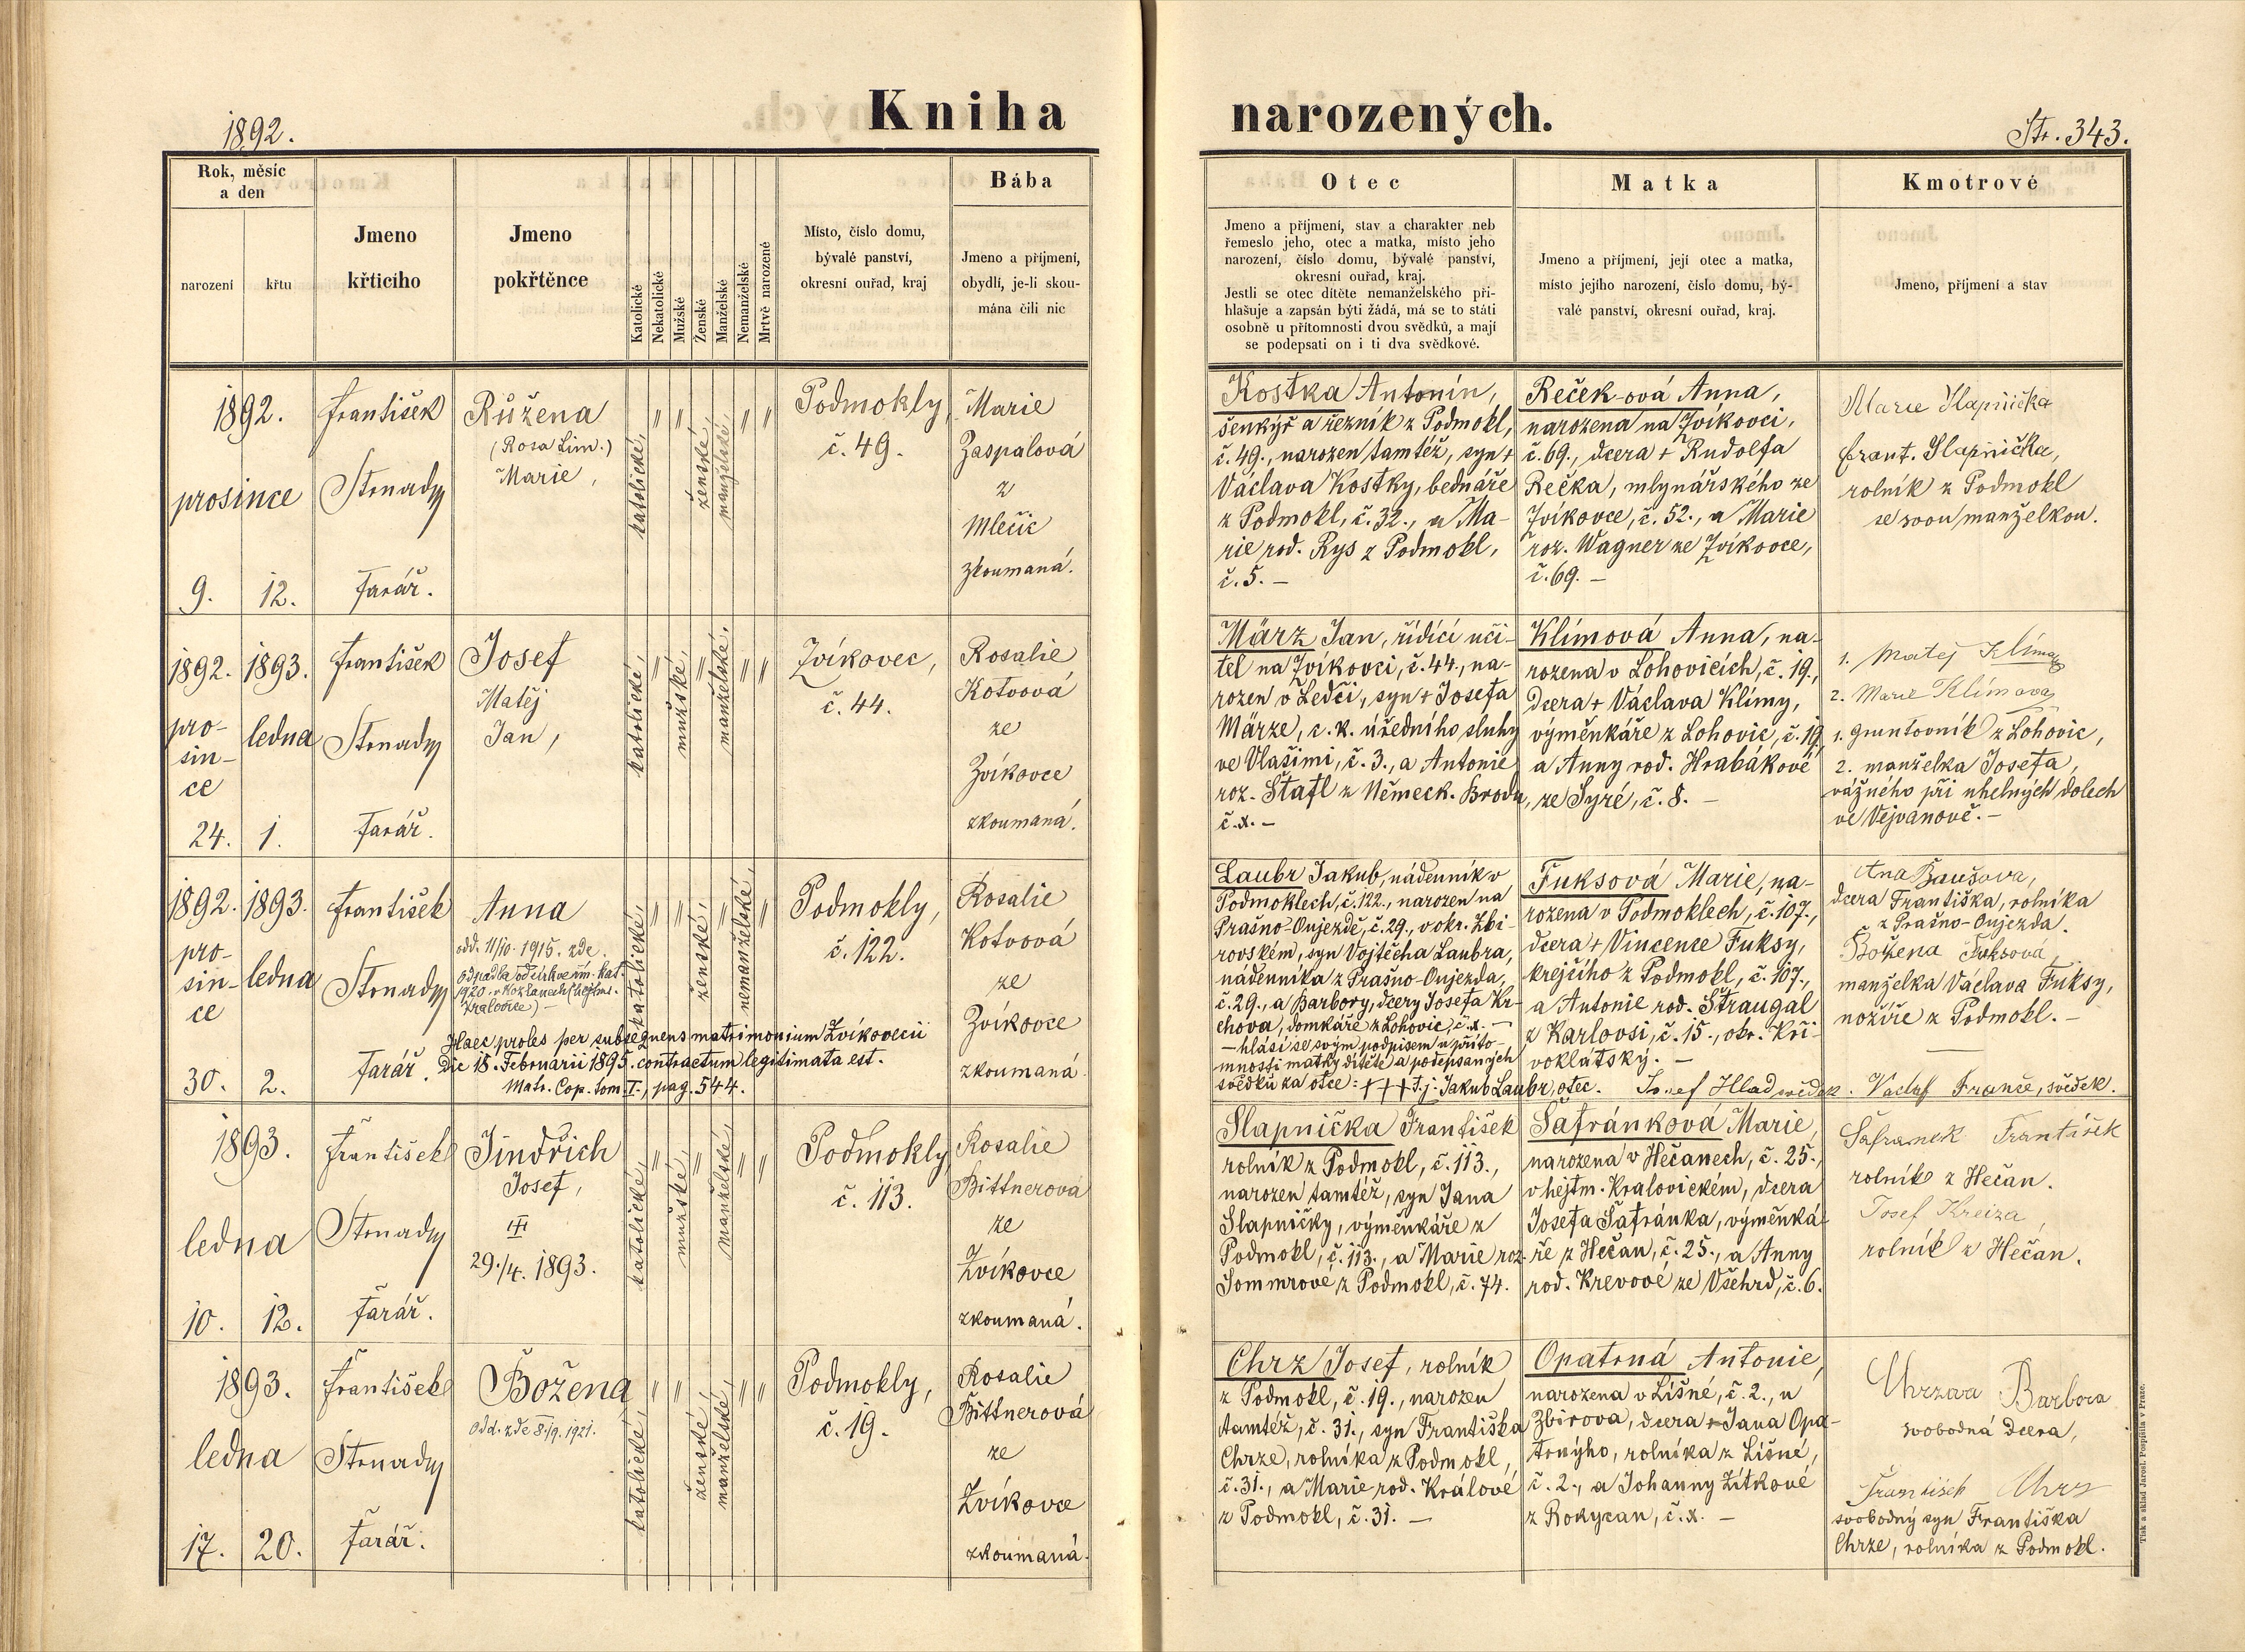 1892.
Kniha narozených.
Str. 343.
Rok, měsíc
a den
narození
křtu
Jmeno
křticího
Jmeno
pokřtěnce
Katolické
Nekatolické
Mužské
Ženské
Manželské
Nemanželské
Mrtvě narozené
Místo, číslo domu,
bývalé panství,
okresní ouřad, kraj
Bába
Jmeno a příjmení,
obydlí, je-li skou-
mána čili nic
Otec
Jmeno a příjmení, stav a charakter neb
řemeslo jeho, otec a matka, místo jeho
narození, číslo domu, bývalé panství,
okresní ouřad, kraj.
Jestli se otec dítěte nemanželského při-
hlašuje a zapsán býti žádá, má se to státi
osobně u přítomnosti dvou svědků, a mají
se podepsati on i ti dva svědkové.
Matka
Jmeno a příjmení, její otec a matka,
místo jejího narození, číslo domu, bý-
valé panství, okresní ouřad, kraj.
Kmotrové
Jmeno, příjmení a stav
1892.
prosince
9.
12.
František
Stonady
Farář.
Růžena
(Rosa Lim.)
Marie,
katolické,
" "
ženské,
manželské,
" "
Podmokly,
č. 49.
Marie
Zaspalová
z
Mlečic
zkoumaná.
Kostka Antonín,
šenkýř a řezník z Podmokl,
č. 49., narozen tamtéž, syn +
Václava Kostky, bednáře
z Podmokl, č. 32., a Ma-
rie rod. Rys z Podmokl,
č. 5. –
Reček-ová Anna,
narozena na Zvíkovci,
č. 69., dcera + Rudolfa
Rečka, mlynářského ze
Zvíkovce, č. 52., a Marie
roz. Wagner ze Zvíkovce,
č. 69. –
Marie Slapnička
Frant. Slapnička,
rolník z Podmokl
se svou manželkou.
1892.
pro-
sin-
ce
24.
1893.
ledna
1.
František
Stonady
Farář.
Josef
Matěj
Jan,
katolické,
"
mužské,
"
manželské,
" "
Zvíkovec,
č. 44.
Rosalie
Kotvová
ze
Zvíkovce
zkoumaná.
März Jan, řídící uči-
tel na Zvíkovci, č. 44., na-
rozen v Ledči, syn + Josefa
Märze, c. k. úředního sluhy
ve Vlašimi, č. 3., a Antonie
roz. Štafl z Německ. Brodu,
č. x. –
Klímová Anna, na-
rozena v Lohovicích, č. 19.,
dcera + Václava Klímy,
výměnkáře z Lohovic, č. 19,
a Anny rod. Hrabákové
ze Syré, č. 8. –
1. Matej Klima
2. Marie Klimova
1. gruntovník z Lohovic,
2. manželka Josefa,
vážného při uhelných dolech
ve Vejvanově. –
1892.
pro-
sin-
ce
30.
1893.
ledna
2.
František
Stonady
Farář.
Anna
odd. 11/10. 1915. zde.
odpadla od církve řím. kat.
1920. v Kozlanech (hejtms.
Kralovice) –
Haec proles per subsequens matrimonium Zvíkovecii
die 18. Februarii 1895. contractum legitimata est.
Matr. Cop. tom. I., pag. 544.
katolické,
" "
ženské,
"
nemanželské,
"
Podmokly,
č. 122.
Rosalie
Kotvová
ze
Zvíkovce
zkoumaná
Laubr Jakub, nádenník v
Podmoklech, č. 122., narozen na
Prašno-Oujezdě, č. 29., v okr. Zbi-
rovském, syn Vojtěcha Laubra,
nádenníka z Prašno-Oujezda,
č. 29., a Barbory, dcery Josefa Kr-
chova, domkáře z Lohovic, č. x. –
– hlásí se svým podpisem u příto-
mnosti matky dítěte a podepsaných
svědků za otce: +++ t. j. Jakub Laubr, otec. Josef Hlad svědek. Vaclaf Franče, svědek.
Fuksová Marie, na-
rozena v Podmoklech, č. 107.,
dcera + Vincence Fuksy,
krejčího z Podmokl, č. 107.,
a Antonie rod. Straugal
z Karlovsi, č. 15., okr. Kři-
voklátský. –
Ana Baušova,
dcera Františka, rolníka
z Prašno-Oujezda.
Božena Fuksová,
manželka Václava Fuksy,
nožíře z Podmokl. –
1893.
ledna
10.
12.
František
Stonady
Farář.
Jindřich
Josef,
29./4. 1893.
katolické,
"
mužské,
"
manželské,
" "
Podmokly,
č. 113.
Rosalie
Bittnerová
ze
Zvíkovce
zkoumaná.
Slapnička František
rolník z Podmokl, č. 113.,
narozen tamtéž, syn Jana
Slapničky, výměnkáře z
Podmokl, č. 113., a Marie roz.
Sommrové z Podmokl, č. 74.
Šafránková Marie,
narozena v Hečanech, č. 25.,
v hejtm. Kralovickém, dcera
Josefa Šafránka, výměnká-
ře z Hečan, č. 25., a Anny
rod. Krevové ze Všehrd, č. 6.
Šafranek František
rolník z Hečan.
Josef Kreiza,
rolník z Hečan.
1893.
ledna
17.
20.
František
Stonady
Farář.
Božena
Odd. zde 8./9. 1921.
katolické,
" "
ženské,
manželské,
" "
Podmokly,
č. 19.
Rosalie
Bittnerová
ze
Zvíkovce
zkoumaná.
Chrz Josef, rolník
z Podmokl, č. 19., narozen
tamtéž, č. 31., syn Františka
Chrze, rolníka z Podmokl,
č. 31., a Marie rod. Králové
z Podmokl, č. 31. –
Opatrná Antonie,
narozena v Líšné, č. 2., u
Zbirova, dcera + Jana Opa-
trnýho, rolníka z Líšné,
č. 2., a Johanny Žítkové
z Rokycan, č. x. –
Chrzova Barbora
svobodná dcera,
František Chrz
svobodný syn Františka
Chrze, rolníka z Podmokl.
Tisk a sklad Jarosl. Pospíšila v Praze.